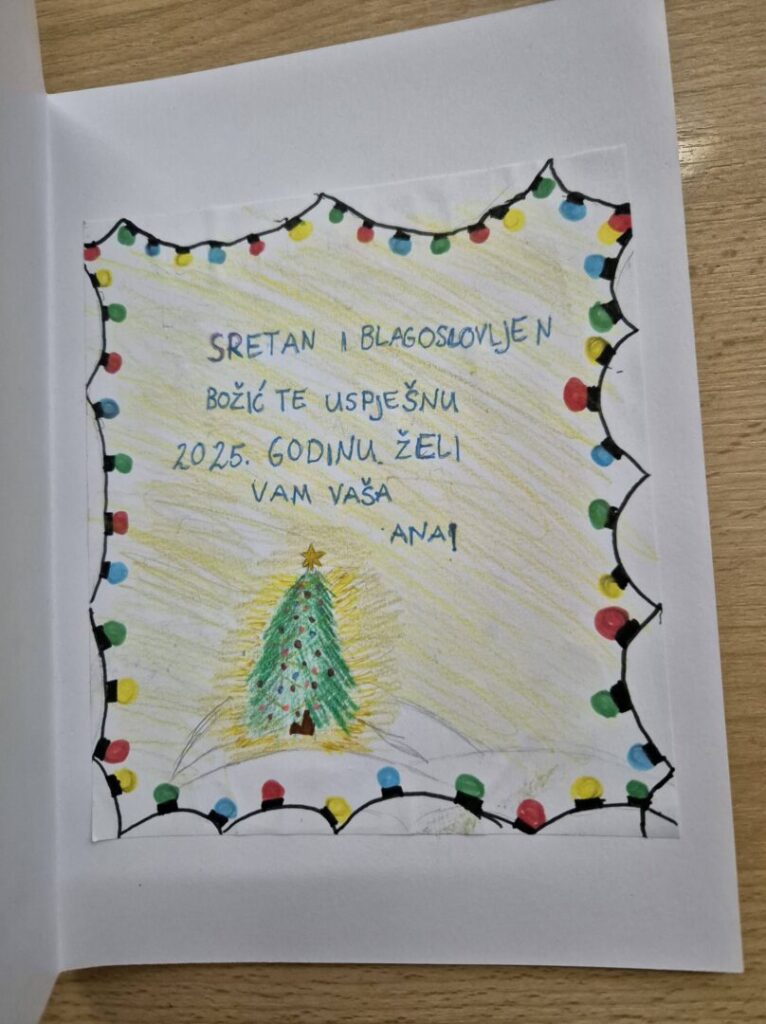 SRETAN I BLAGOSLOVLJEN
BOŽIĆ TE USPJEŠNU
2025. GODINU ŽELI
VAM VAŠA
ANA!